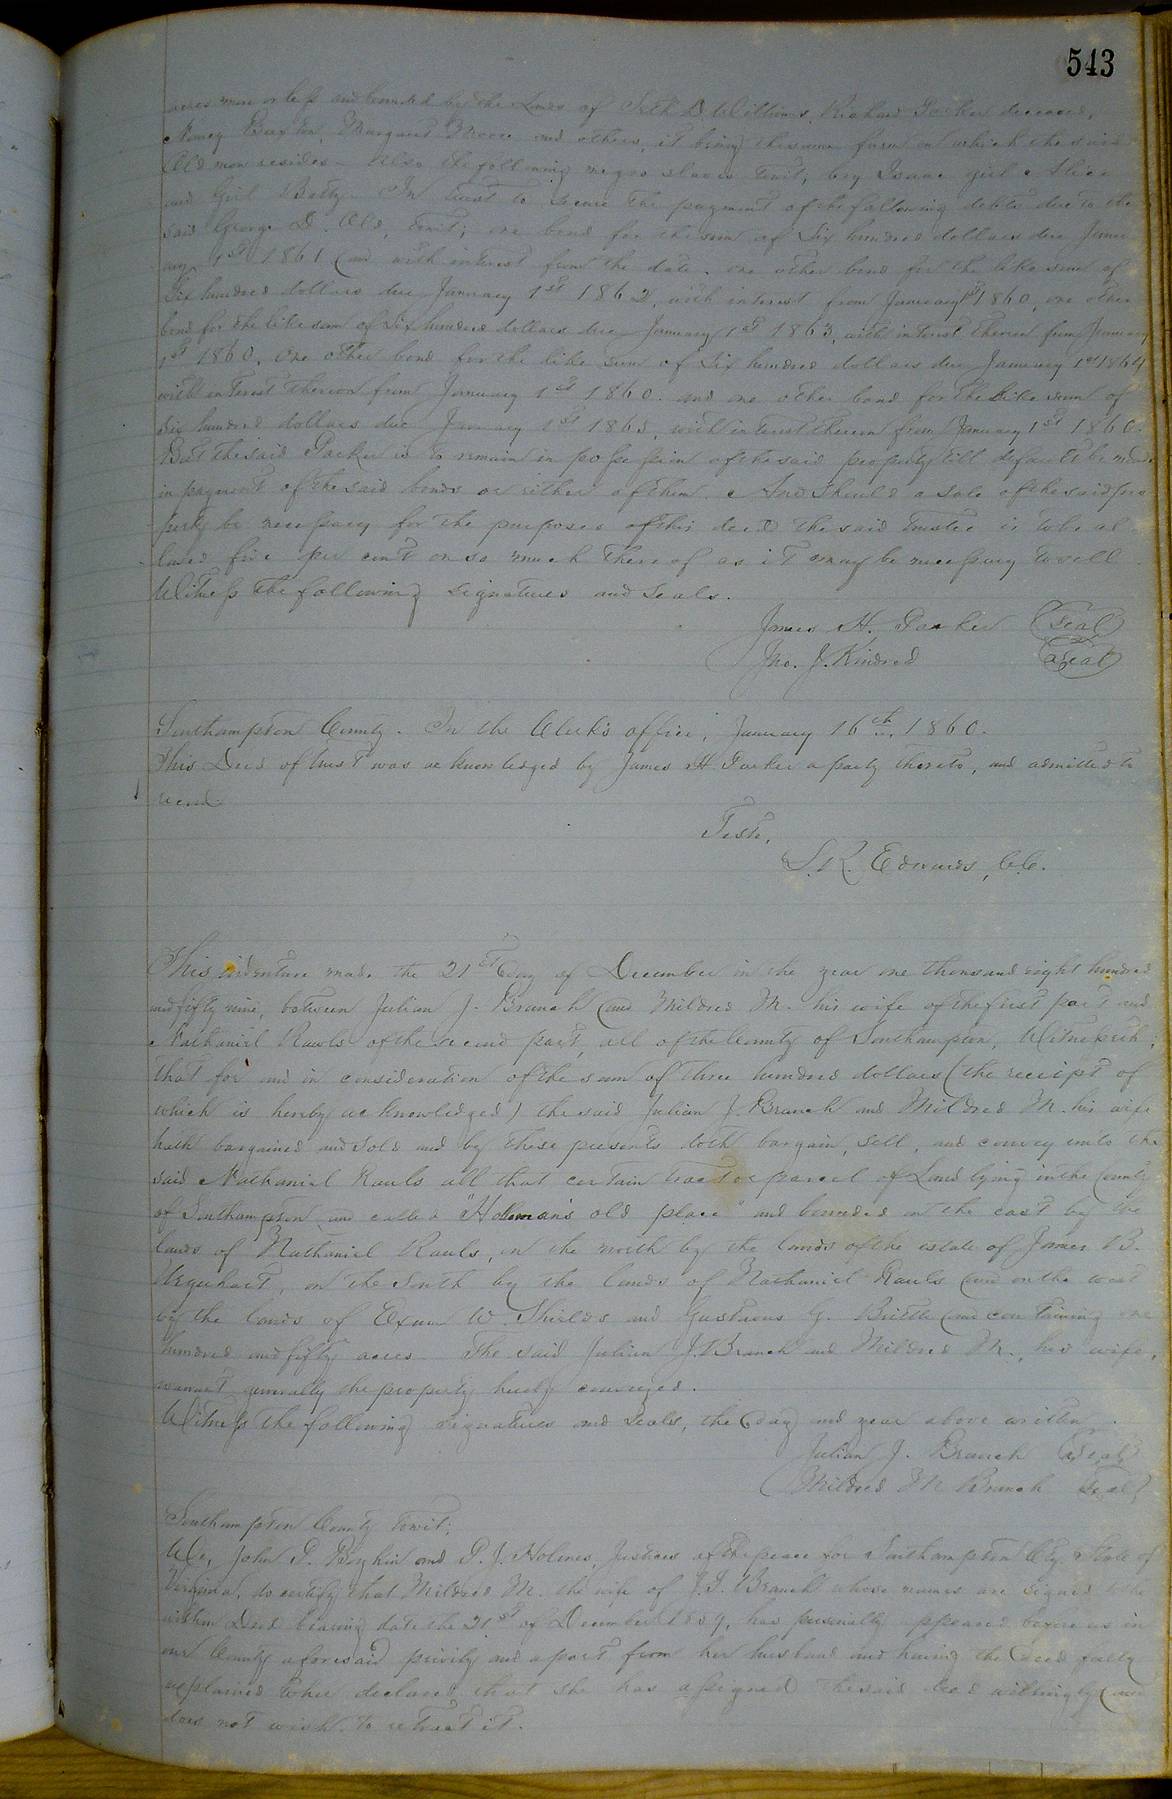 543
acres more or less and bounded by the Lands of Seth D Williams, Richard Parker deceased,
Nancy Barham, Margaret Moore and others, it being the same farm on which the said
Old man resides – Also the following negro slaves towit, boy Isaac girl Alice
and Girl Betty. In trust to secure the payment of the following debts due to the
said George D. Old, towit; one bond for the sum of Six hundred dollars due Janu-
ary 1st 1861 and with interest from the date. one other bond for the like sum of
Six hundred dollars due January 1st 1862, with interest from January 1st 1860, one other
bond for the like sum of Six hundred dollars due January 1st 1863, with interest thereon from January
1st 1860. One other bond for the like sum of Six hundred dollars due January 1st 1864
with interest thereon from January 1st 1860. and one other bond for the like sum of
Six hundred dollars due January 1st 1865, with interest thereon from January 1st 1860.
But the said Parker is to remain in possession of the said property till default be made
in payment of the said bonds or either of them. And should a sale of the said pro-
perty be necessary for the purposes of this deed the said trustee is to be al-
lowed five per cent on so much thereof as it may be necessary to sell
Witness the following signatures and seals.
James H. Parker (Seal)
Jno. J. Kindred (Seal)
Southampton County. In the Clerk's office, January 16th 1860.
This Deed of trust was acknowledged by James H Parker a party thereto, and admitted to
record.
Teste,
L. R. Edwards, C.C.
This indenture made the 21st day of December in the year one thousand eight hundred
and fifty nine, between Julian J. Branch and Mildred M. his wife of the first part and
Nathaniel Rawls of the second part, all of the County of Southampton, Witnesseth;
that for and in consideration of the sum of three hundred dollars (the receipt of
which is hereby acknowledged) the said Julian J. Branch and Mildred M. his wife
hath bargained and sold and by these presents doth bargain, sell, and convey unto the
said Nathaniel Rawls all that certain tract or parcel of Land lying in the County
of Southampton and called "Holleman's old place" and bounded on the east by the
lands of Nathaniel Rawls, on the north by the lands of the estate of James B.
Urquhart, on the South by the lands of Nathaniel Rawls and on the west
by the lands of Exum W. Shields and Gustavus G. Brittle and containing one
hundred and fifty acres The said Julian J. Branch and Mildred M., his wife,
warrant generally the property hereby conveyed.
Witness the following signatures and seals, the day and year above written.
Julian J. Branch (Seal)
Mildred M Branch (Seal)
Southampton County towit;
We, John P. Boykin and P. J. Holmes, Justices of the peace for Southampton Cty. State of
Virginia, do certify that Mildred M. the wife of J. J. Branch whose names are signed to the
within Deed bearing date the 21st of December 1859, has personally appeared before us in
our County aforesaid privily and apart from her husband and having the Deed fully
explained to her declared that she has assigned the said deed willingly and
does not wish to retract it.